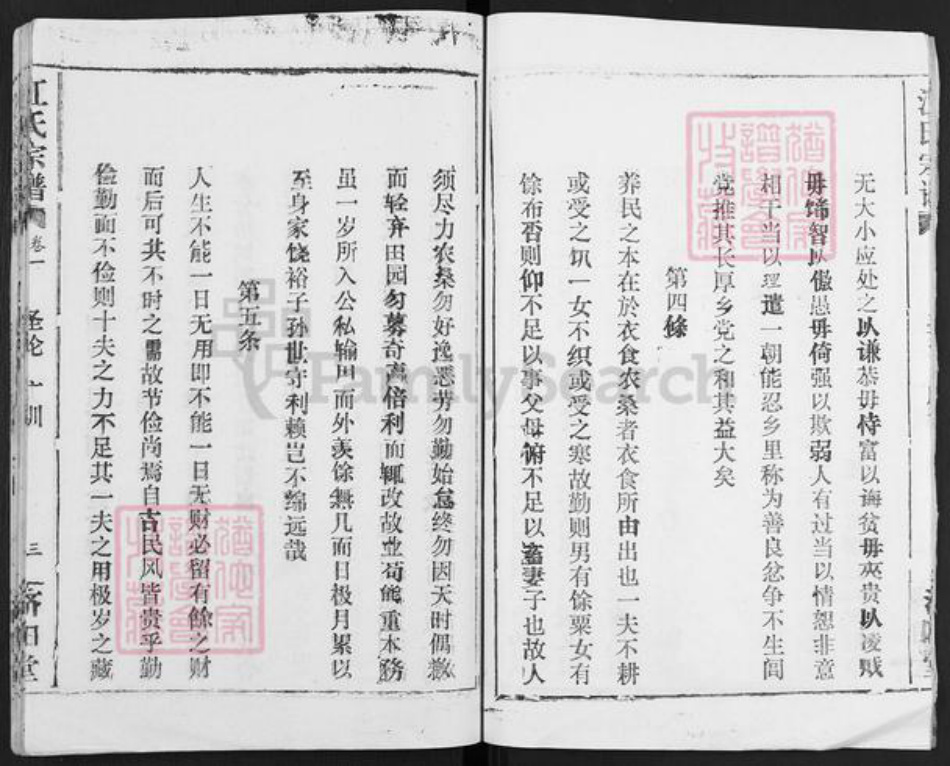 无大小应处之以谦恭毋恃富以诲贫毋夹贵以凌贱
毋饰智以傲愚毋倚强以欺弱人有过当以情恕非意
相干当以理遣一朝能忍乡里称为善良忿争不生闾
党推其长厚乡党之和其益大矣
第四條
养民之本在於衣食农桑者衣食所由出也一夫不耕
或受之饥一女不织或受之寒故勤则男有馀粟女有
馀布否则仰不足以事父母俯不足以畜妻子也故人
须尽力农桑勿好逸恶劳勿勤始怠终勿因天时偶歉
而轻弃田园勿慕奇赢倍利而辄改故业苟能重本务
虽一岁所入公私输用而外羡馀無几而日极月累以
至身家饶裕子孙世守利赖岂不绵远哉
第五条
人生不能一日无用即不能一日无财必留有餘之财
而后可共不时之需故节俭尚焉自古民风皆贵乎勤
俭勤而不俭则十夫之力不足其一夫之用极岁之藏
江氏宗譜
卷一
圣
训
三
堂
FamilySearch